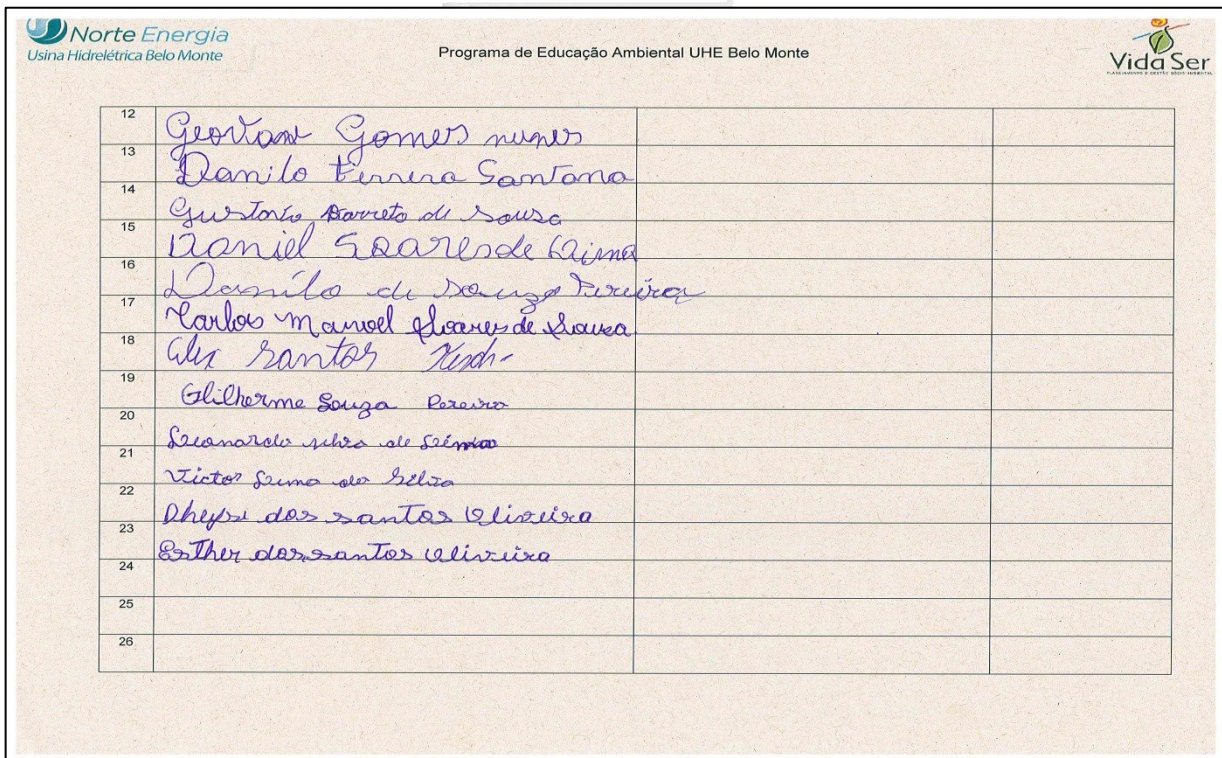 Norte Energia
Usina Hidrelétrica Belo Monte
Programa de Educação Ambiental UHE Belo Monte
Vida Ser
12 Geovane Gomes nunes
13 Danilo Ferrera Santana
14 Gustavo Barreto de Sousa
15 Daniel Soares de Lima
16 Danilo de Souza Pereira
17 Carlos Manoel Soares de Souza
18 Alex Santos
19 Guilherme Souza Pereira
20 Leonardo silva de Lima
21 Victor Lima da Silva
22 dos santos Oliveira
23 Esther dos santos Oliveira
24
25
26